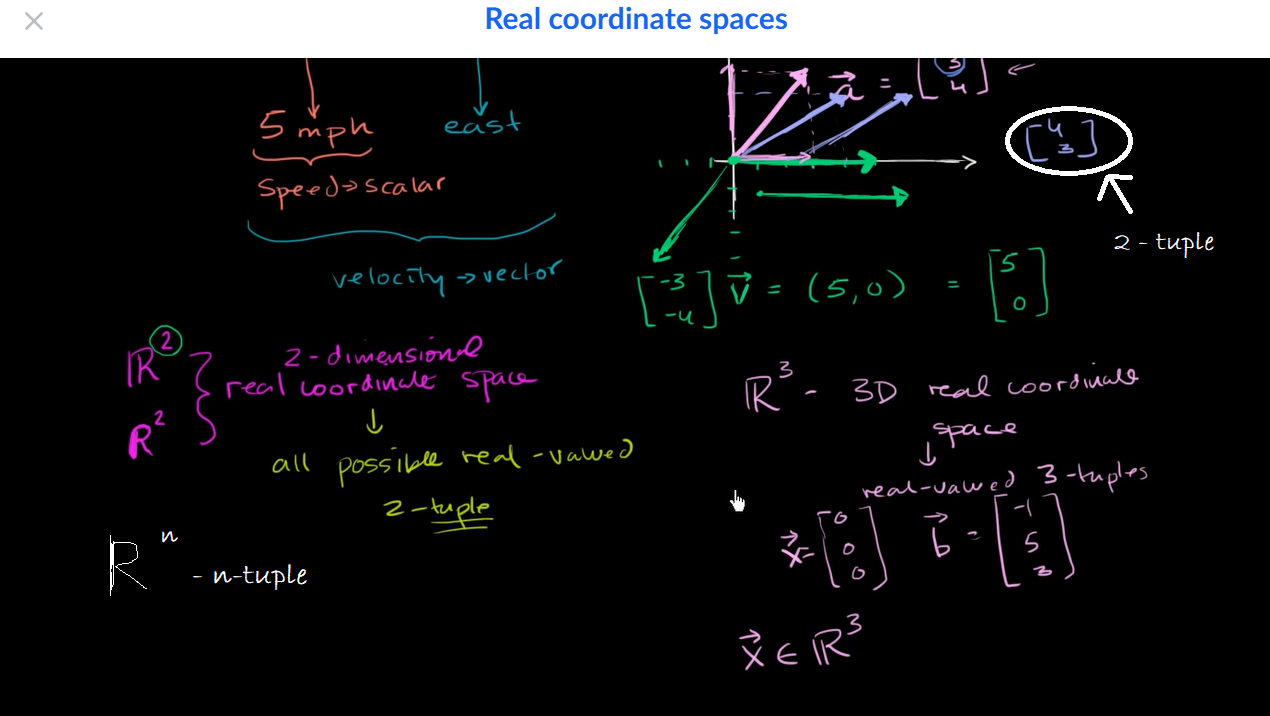 Real coordinate spaces
5 mph
east
speed → scalar
velocity → vector
a = [3
4]
[4
3]
2 - tuple
[-3
-4]
v = (5,0) = [5
0]
ℝ²
R²
2-dimensional
real coordinate space
↓
all possible real-valued
2-tuple
ℝⁿ - n-tuple
ℝ³ - 3D real coordinate
space
↓
real-valued 3-tuples
x = [0
0
0]
b = [-1
5
3]
x ∈ ℝ³